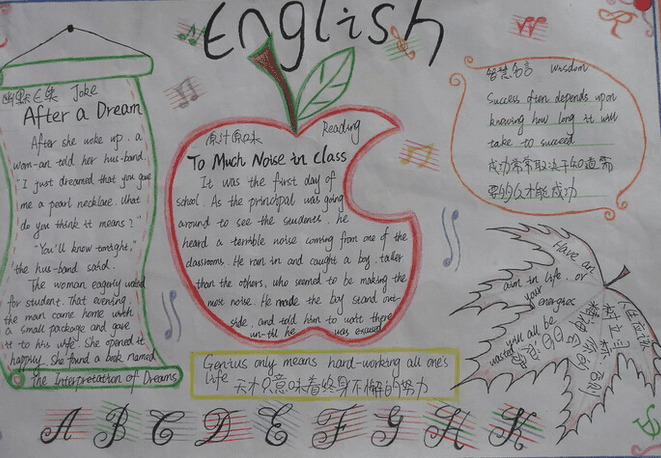 English
幽默区笑 Joke
After a Dream
After she woke up, a
wom-an told her hus-band.
"I just dreamed that you gave
me a pearl necklace. What
do you think it means?"
"You'll know tonight,"
the hus-band said.
The woman eagerly
for student. That evening,
the man came home with
a small package and gave
it to his wife. She opened it
happily. She found a book named
the Interpretation of Dreams
原汁原味 Reading
To Much Noise in Class
It was the first day of
school. As the principal was going
around to see the students, he
heard a terrible noise coming from one of the
classrooms. He ran in and caught a boy, taller
than the others, who seemed to be making the
most noise. He made the boy stand out-
side, and told him to wait there
un-till he was excused
智慧名言 Wisdom
Success often depends upon
knowing how long it will
take to succeed
成功常常取决于知道需
要多久才能成功
Have an
aim in life, or
your energies
will all be
wasted
人生应该
树立目标
否则
你的精力
会白白
浪费
Genius only means hard-working all one's
life
天才只意味着终身不懈的努力
A B C D E F G H K